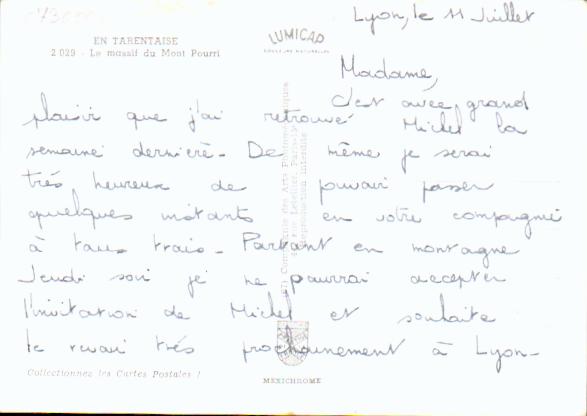 Lyon, le 11 Juillet
EN TARENTAISE
2 029 - Le massif du Mont Pourri
LUMICAP
COULEURS NATURELLES
Madame,
C'est avec grand
plaisir que j'ai retrouvé Michel la
semaine dernière - De même je serai
très heureux de pouvoir passer
quelques instants en votre compagnie
à tous trois - Partant en montagne
Jeudi soir je ne pourrai accepter
l'invitation de Michel et souhaite
le revoir très prochainement à Lyon -
Collectionnez les Cartes Postales !
MEXICHROME